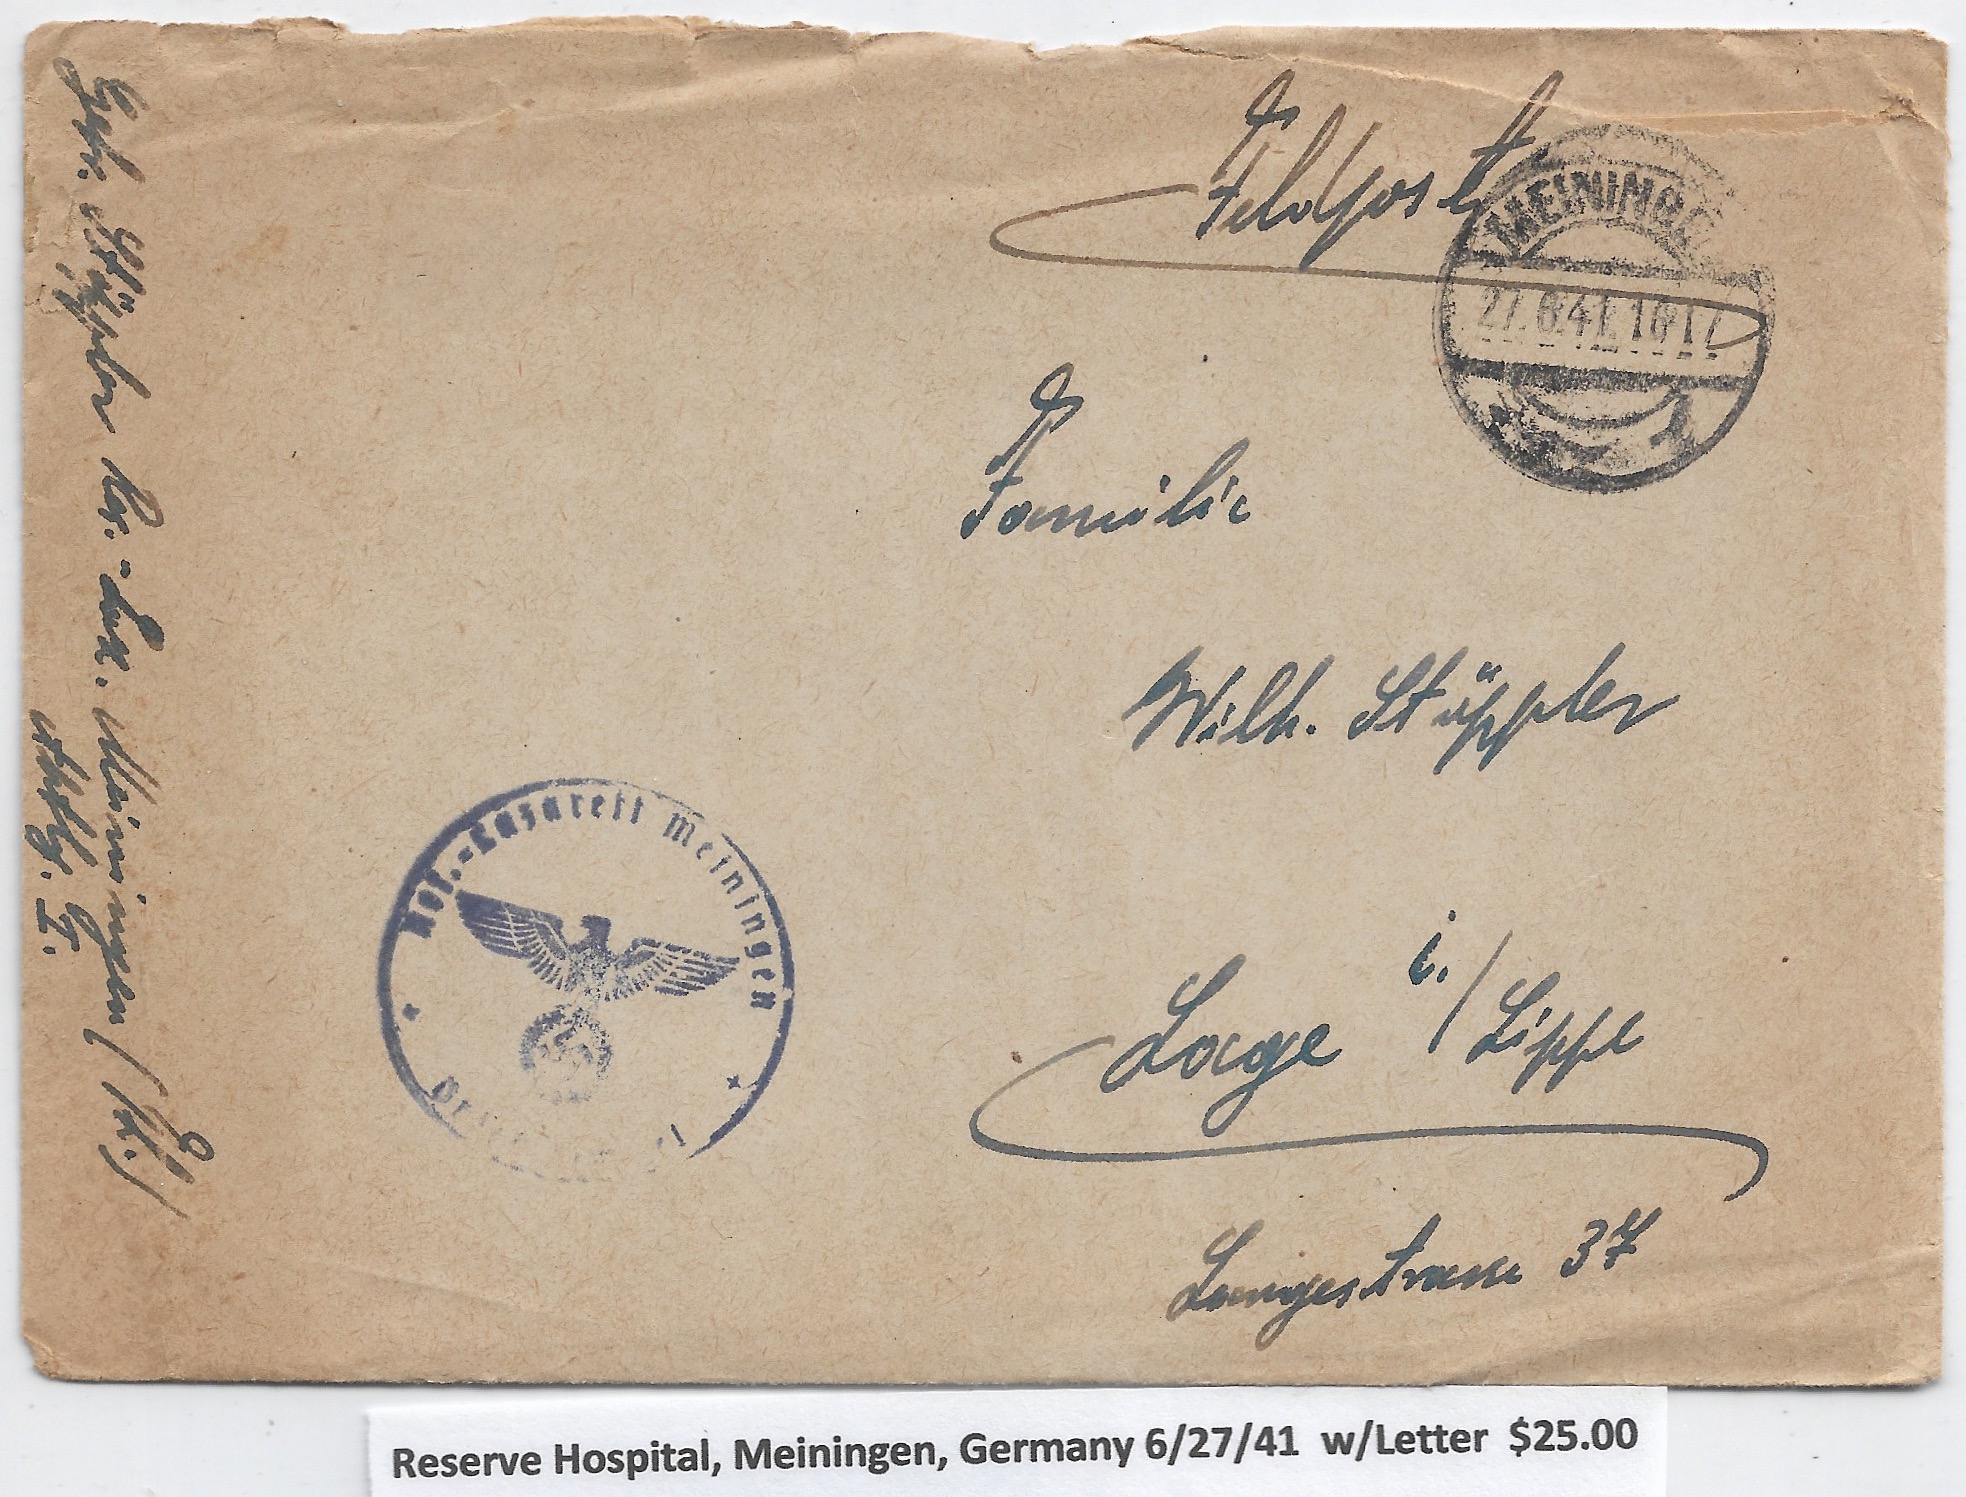 Feldpost
MEININGEN
27.6.41.16-17
Familie
Wilh. Stüppler
Lage i./Lippe
Langestrasse 37
Res.-Lazarett Meiningen
Stüppler Res.-Laz. Meiningen (Th.)
Abtlg. I.
Reserve Hospital, Meiningen, Germany 6/27/41 w/Letter $25.00